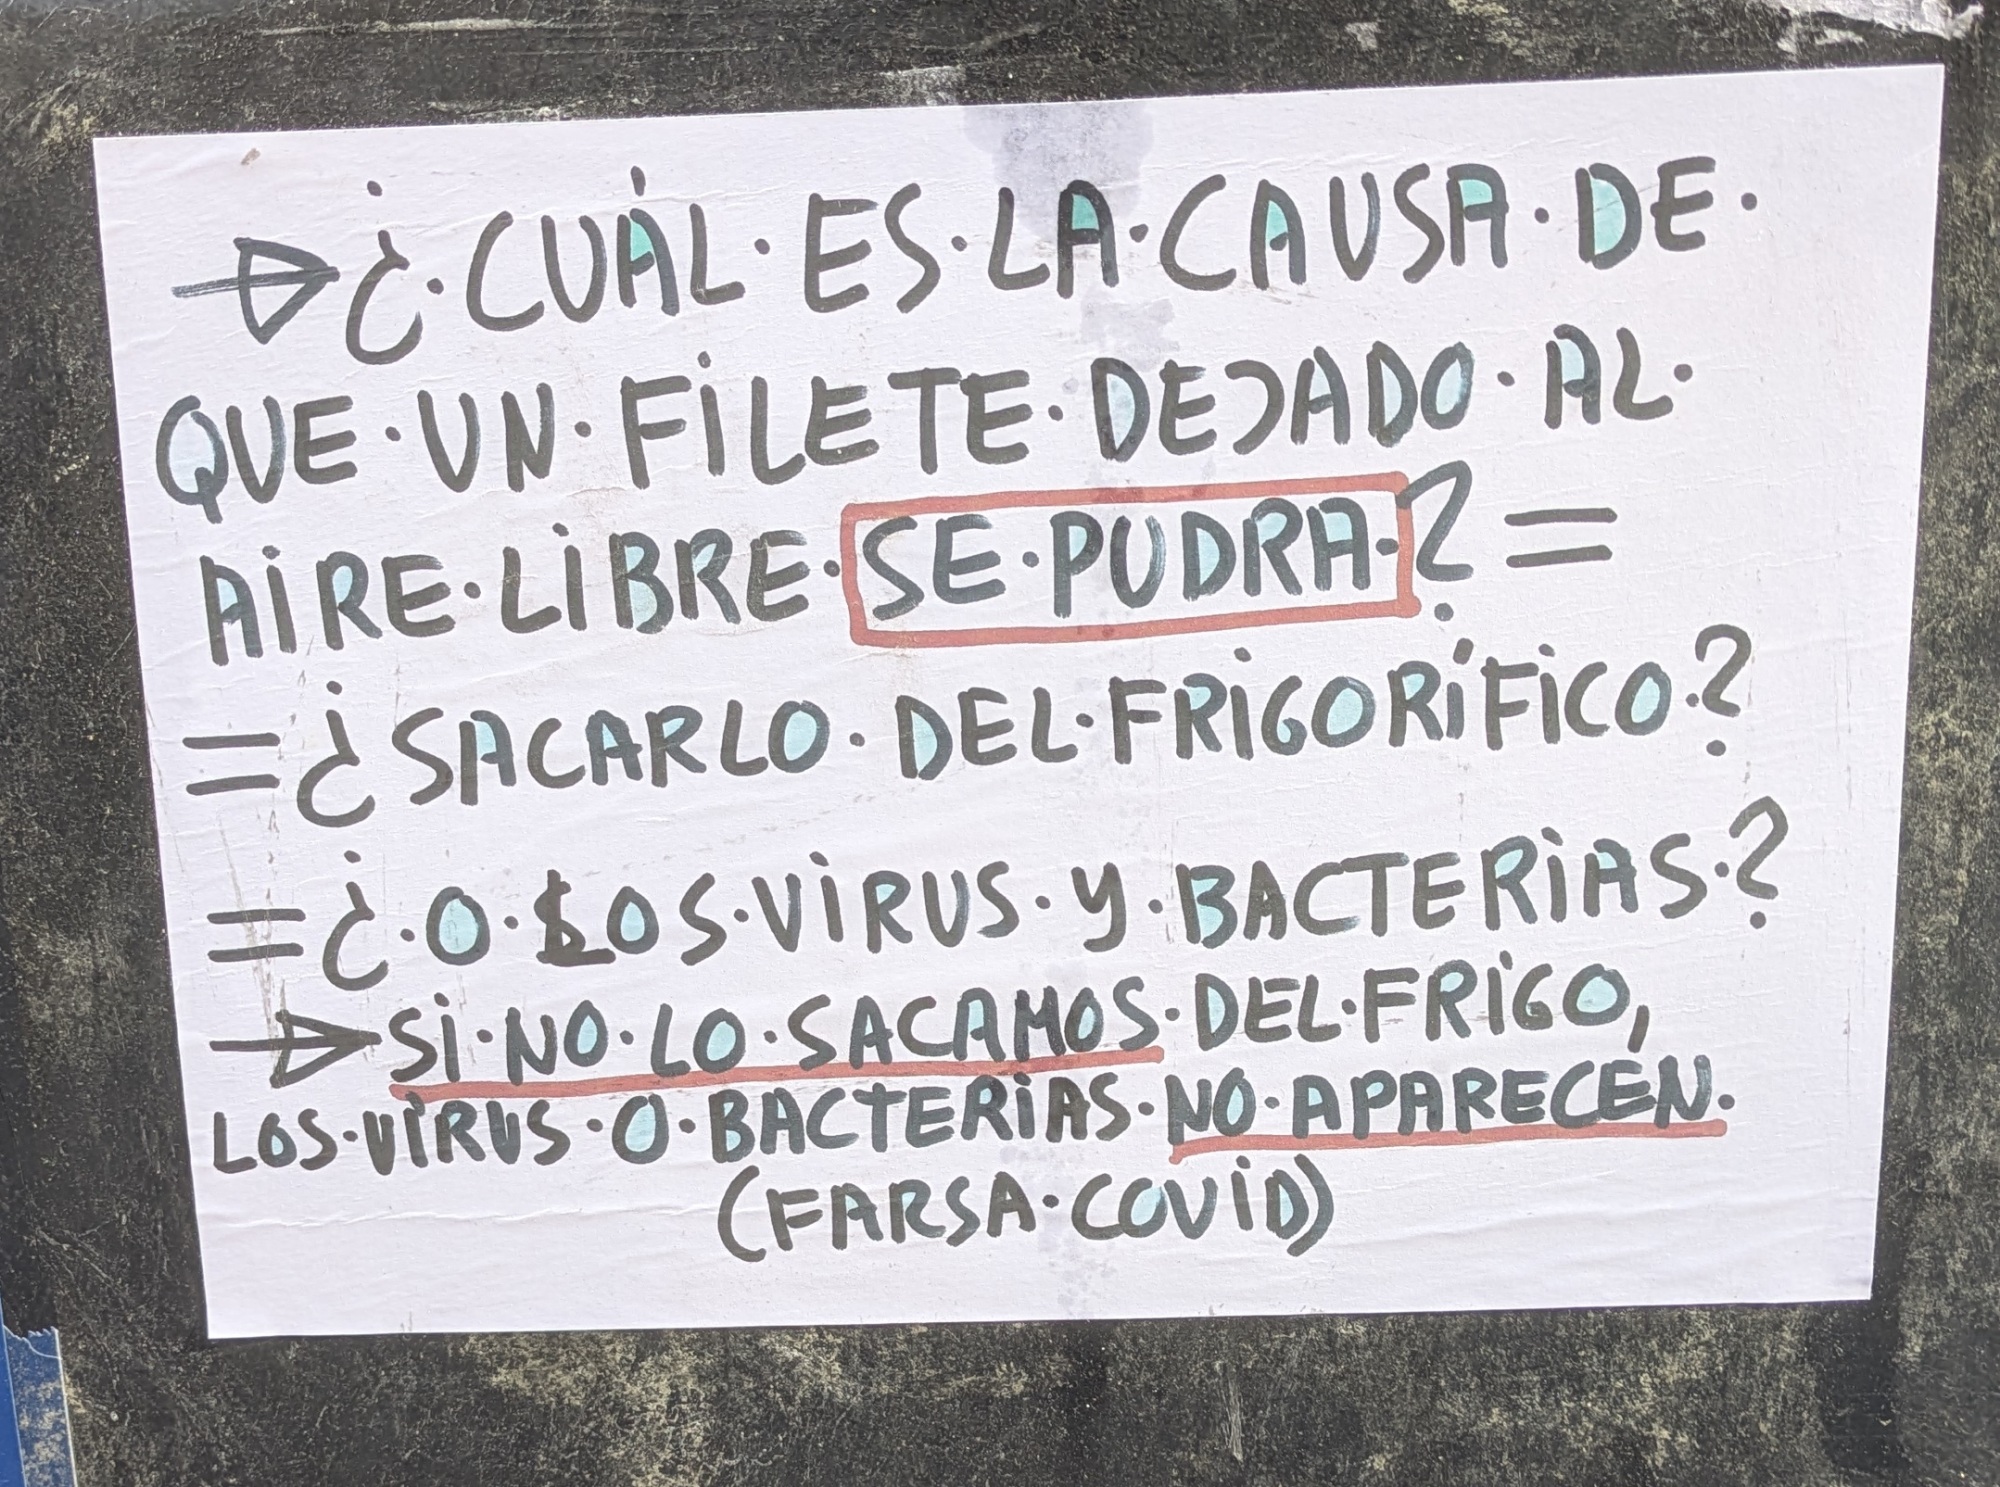 →¿·CUÁL·ES·LA·CAUSA·DE·
QUE·UN·FILETE·DEJADO·AL·
AIRE·LIBRE·SE·PUDRA·? =
=¿SACARLO·DEL·FRIGORÍFICO·?
=¿·O·LOS·VIRUS·Y·BACTERIAS·?
→SI·NO·LO·SACAMOS·DEL·FRIGO,
LOS·VIRUS·O·BACTERIAS·NO·APARECEN.
(FARSA·COVID)